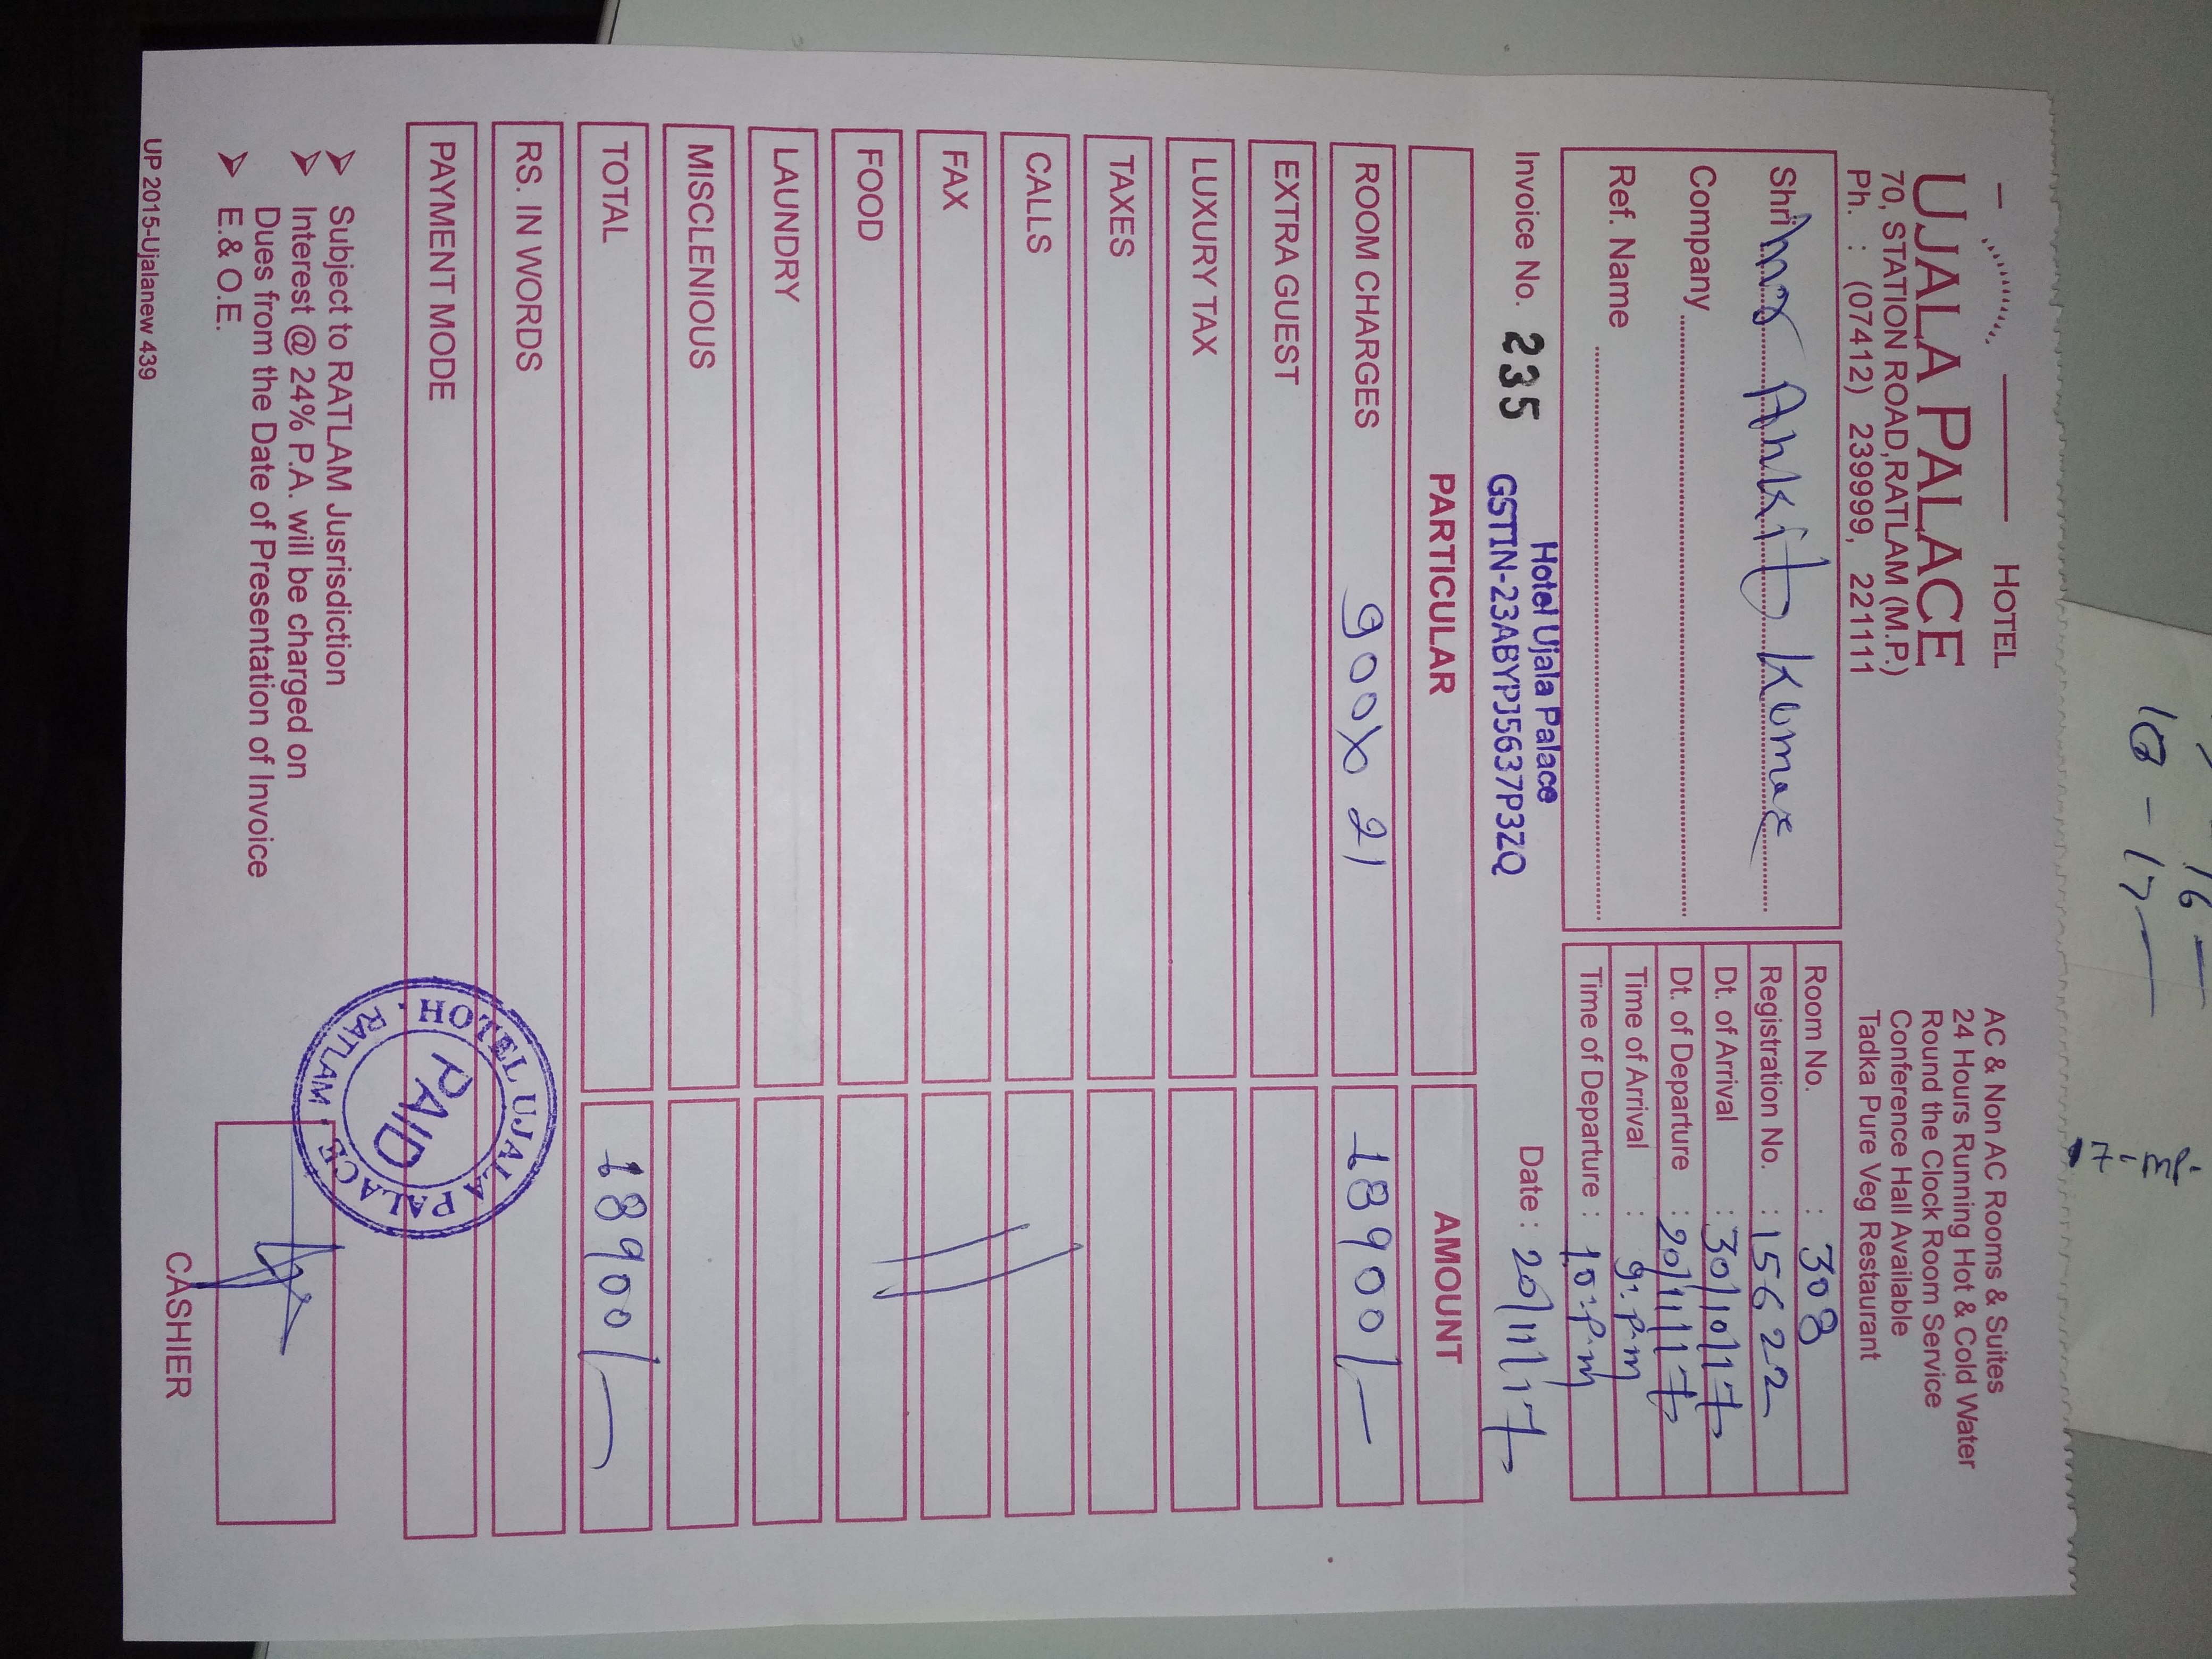 HOTEL
UJALA PALACE
70, STATION ROAD,RATLAM (M.P.)
Ph. : (07412) 239999, 221111
AC & Non AC Rooms & Suites
24 Hours Running Hot & Cold Water
Round the Clock Room Service
Conference Hall Available
Tadka Pure Veg Restaurant
Shri Ankit Kumar
Company
Ref. Name
Room No. : 308
Registration No. : 15622
Dt. of Arrival : 30/10/17
Dt. of Departure : 20/11/17
Time of Arrival : 9:P.M
Time of Departure : 10:P.M
Invoice No. 235
Hotel Ujala Palace
GSTIN-23ABYPJ5637P3ZQ
Date : 20/11/17
PARTICULAR AMOUNT
ROOM CHARGES 900X21 18900/-
EXTRA GUEST
LUXURY TAX
TAXES
CALLS
FAX
FOOD
LAUNDRY
MISCLENIOUS
TOTAL 18900/-
RS. IN WORDS
PAYMENT MODE
HOTEL UJALA PALACE
RATLAM
PAID
Subject to RATLAM Jusrisdiction
Interest @ 24% P.A. will be charged on
Dues from the Date of Presentation of Invoice
E.& O.E.
CASHIER
UP 2015-Ujalanew 439